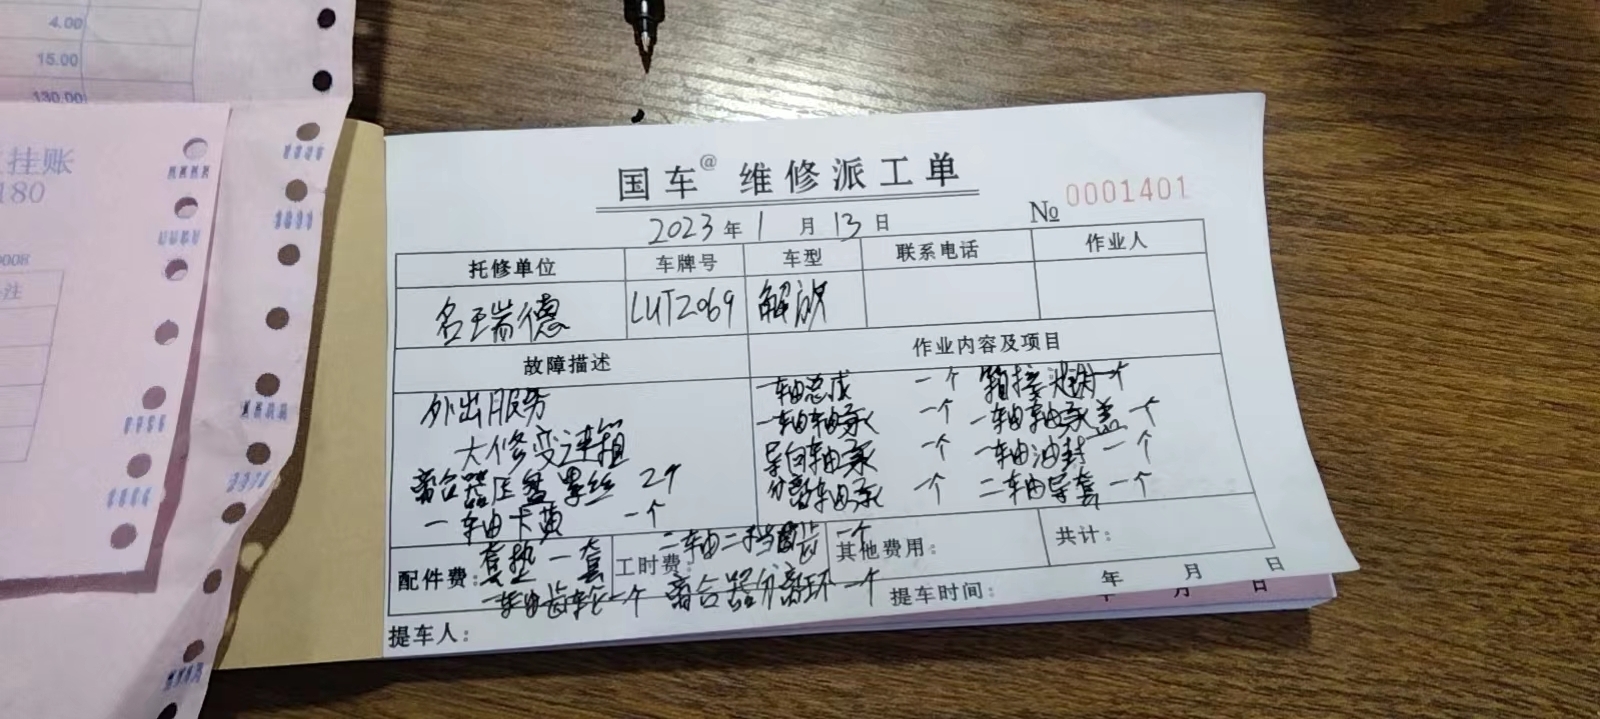 4.00
15.00
130.00
挂账
180
0008
注
国车@ 维修派工单
2023年1月13日
№ 0001401
托修单位 车牌号 车型 联系电话 作业人
名瑞德 LUT2069 解放
故障描述 作业内容及项目
外出服务
大修变速箱
离合器压盘罗丝 2个
一轴卡黄 一个
一轴总成 一个
一轴轴承 一个 一轴轴承盖 一个
导向轴承 一个 一轴油封 一个
分离轴承 一个 二轴导套 一个
配件费: 套垫一套 工时费: 二轴二挡齿 一个 其他费用: 共计:
一轴齿轮一个 离合器分离环一个
提车人: 提车时间: 年 月 日
年 月 日